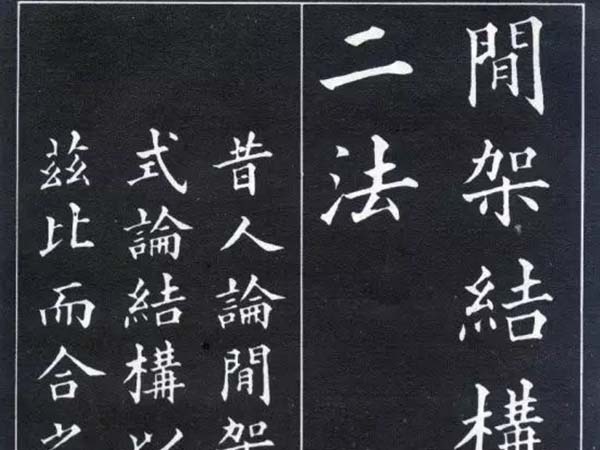 間架結構
二法
昔人論間架
式論結構以
茲比而合之